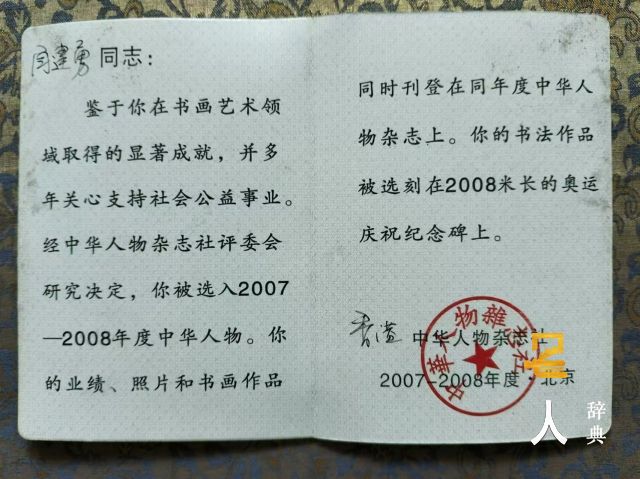 闫建勇同志：
鉴于你在书画艺术领
域取得的显著成就，并多
年关心支持社会公益事业。
经中华人物杂志社评委会
研究决定，你被选入2007
—2008年度中华人物。你
的业绩、照片和书画作品
同时刊登在同年度中华人
物杂志上。你的书法作品
被选刻在2008米长的奥运
庆祝纪念碑上。
香港 中华人物杂志社
中華人物雜志社
2007-2008年度·北京
名
人
辞典